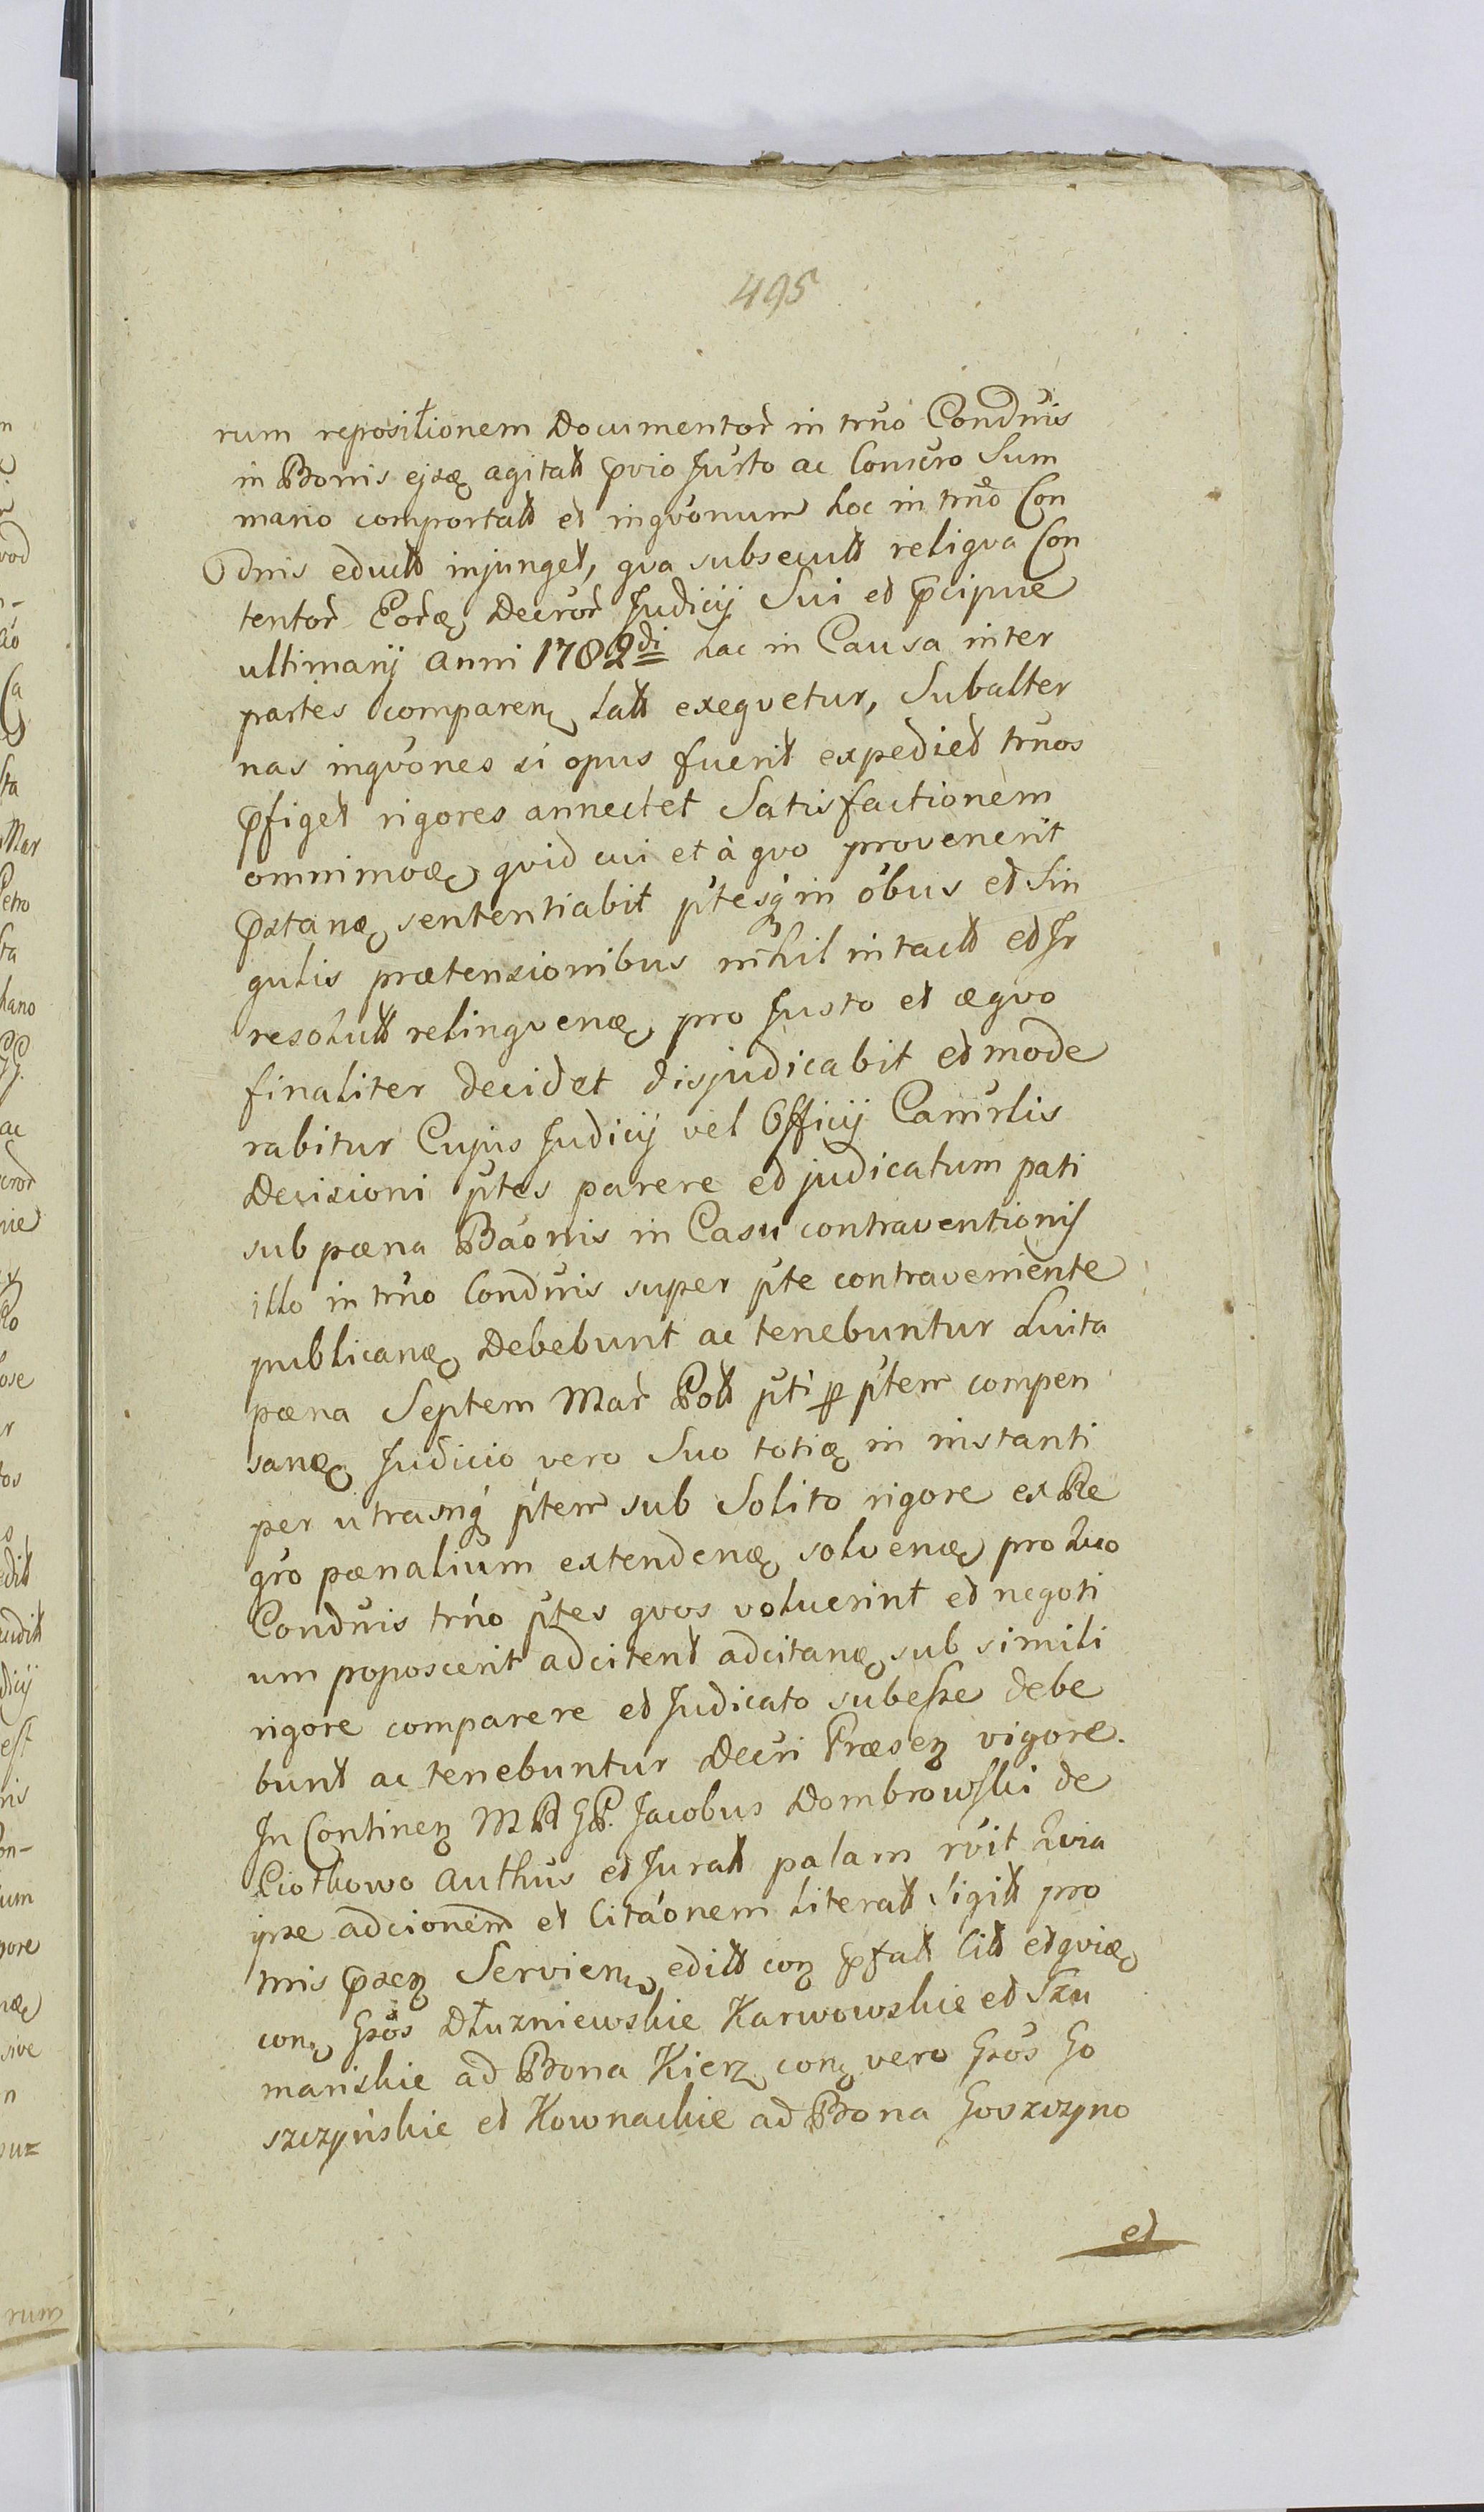 495
rum repositionem Documentor in trno Condnis
in Bonis ejsdę agitatt pvio Justo ac Consvro Sum
mario comportatt et inqvonum hoc in trno Con
dnis eductt injunget, qva subsecutt reliqva Con
tentor Eordę Decror Judicij Sui et pcipue
ultimarij Anni 1782di hac in Causa inter
partes comparenę latt exeqvetur, Subalter
nas inqvones si opus fuerit expediet trnos
pfiget rigores annectet Satisfactionem
omnimodę qvid cui et à qvo provenerit
pstandę sententiabit ptesq in obus et Sin
gulis prætensionibus nihil intactt et Jr
resolutt relinqvendę pro Justo et æqvo
finaliter decidet disjudicabit et mode
rabitur Cujus Judicij vel Officij Camrlis
Decisioni ptes parere et judicatum pati
sub pæna Baonis in Casu contraventionis
illo in trno Condnis super pte contraveniente
publicandę Debebunt ac tenebuntur Luita
pæna Septem Mar Polt pti p ptem compen
sandę Judicio vero Suo totię in instanti
per utrasnq ptem sub Solito rigore ex Re
gro pænalium extendendę solvendę pro Quo
Condnis trno ptes qvos voluerint et negoti
um poposcerit adcitent adcitandę sub simili
rigore comparere et Judicato subesse debe
bunt ac tenebuntur Decri Præseq vigore.
In Contineq M R GP. Jacobus Dombrowski de
Ciotkowo Authus et Juratt palam rvit Quia
ipse adcionem et Citaonem Literatt Sigitt pro
mis pseq Servienę editt coq pfatt Citt et qvidę
conę Gsos Dłuzniewskie Karwowskie et Szu
manskie ad Bona Kierz conę vero Gsos Go
szczyńskie et Kownackie ad Bona Goszczyno
et